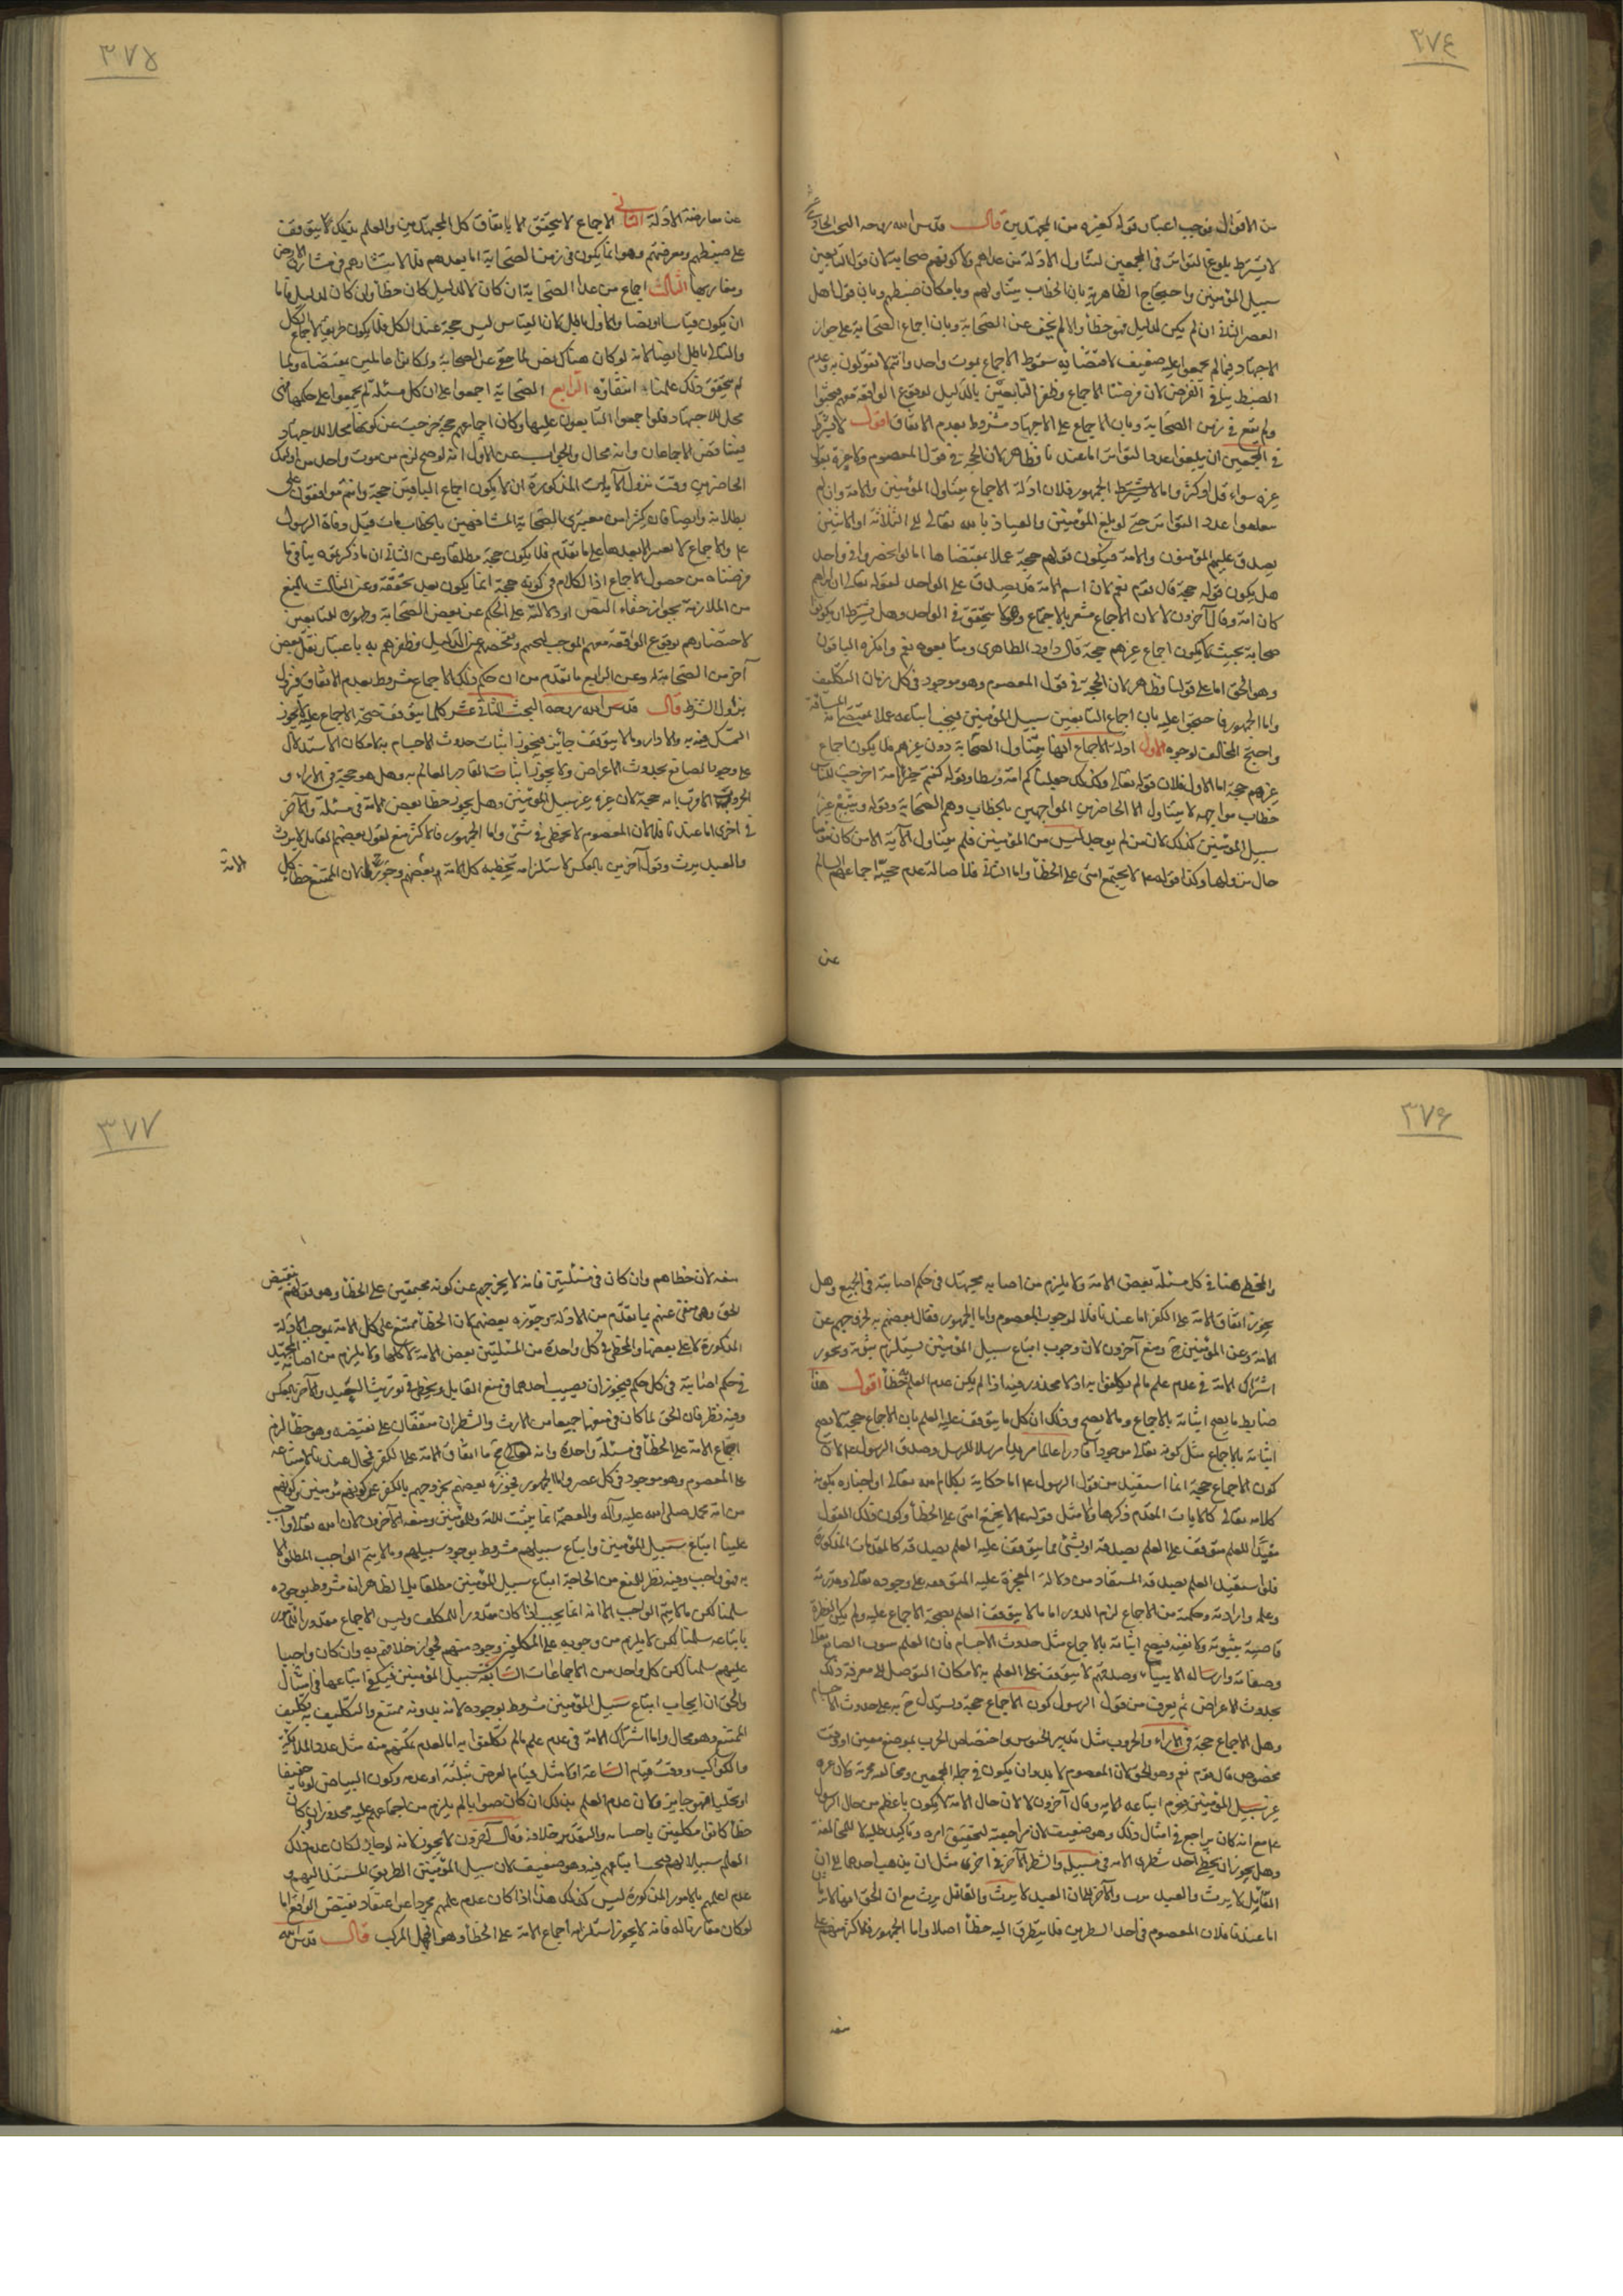 ٣٧٤
من الاقوال فوجب اعتبار قوله كغيره من المجتهدين قال قدس الله روحه البحث الحادي عشر
لا يشترط بلوغ التواتر في المجمعين لتناول الادلة من عداهم ولا كونهم صحابة لان قول التابعين
سبيل المؤمنين واحتجاج الظاهرية بان الخطاب يتناولهم وبامكان ضبطهم وبان قول اهل
العصر الثاني ان لم يكن لدليل فهو خطأ والا لم يخف عن الصحابة وبان اجماع الصحابة على جواز
الاجتهاد فيما لم يجمعوا عليه ضعيف لاقتضائه سقوط الاجماع بموت واحد وانتم لا تقولون به وعدم
الضبط ينافي الفرض لان فرضنا الاجماع وظفر التابعين بالدليل لوقوع الواقعة معهم فبحثوا
ولم يقع في زمن الصحابة وبان الاجماع على الاجتهاد مشروط بعدم الاتفاق اقول لا يشترط
في المجمعين ان يبلغوا عدد التواتر اما عندنا فظاهر لان الحجة في قول المعصوم ولا عبرة بقول
غيره سواء قل او كثر واما الجمهور فلان ادلة الاجماع يتناول المؤمنين والامة وان لم
يبلغوا عدد التواتر حتى لو بلغ المؤمنين والعياذ بالله تعالى الى الثلاثة او الاثنين
يصدق عليهم المؤمنون والامة فيكون قولهم حجة عملا بمقتضاها اما لو انحصر في واحد
هل يكون قوله حجة قال قوم نعم لان اسم الامة قد يصدق على الواحد لقوله تعالى ان ابراهيم
كان امة وقال آخرون لا لان الاجماع مشعر بالاجتماع وهو لا يتحقق في الواحد وهل يشترط ان يكونوا
صحابة بحيث لا يكون اجماع غيرهم حجة قال داود الظاهري ومتابعوه نعم وانكره الباقون
وهو الحق اما على قولنا فظاهر لان الحجة في قول المعصوم وهو موجود في كل زمان التكليف
واما الجمهور فاحتجوا عليه بان اجماع التابعين سبيل المؤمنين فيجب اتباعه عملا بمقتضى الآية السابقة
واحتج المخالف لوجوه الاول ادلة الاجماع انها يتناول الصحابة دون غيرهم فلا يكون اجماع
غيرهم حجة اما الاول فلان قوله تعالى وكذلك جعلناكم امة وسطا وقوله كنتم خير امة اخرجت للناس
خطاب مواجهة لا يتناول الا الحاضرين المواجهين بالخطاب وهم الصحابة وقوله ويتبع غير
سبيل المؤمنين كذلك لان من لم يوجد ليس من المؤمنين فلم يتناول الآية الا من كان مؤمنا
حال نزولها وكذا قوله عم لا يجتمع امتي على الخطأ واما الثاني فلاصالة عدم حجية اجماعهم السالم
عن
٣٧٥
عن معارضة الادلة الثاني الاجماع لا يتحقق الا باتفاق كل المجتهدين والعلم بذلك يتوقف
على ضبطهم ومعرفتهم وهو انما يكون في زمن الصحابة اما بعدهم فلا لانتشارهم في مشارق الارض
ومغاربها الثالث اجماع من عدا الصحابة ان كان لا لدليل كان خطأ وان كان لدليل فاما
ان يكون قياسا او نصا والاول باطل لان القياس ليس حجة عند الكل فلا يكون طريقا لاجماع الكل
والثاني باطل ايضا لانه لو كان هناك نص لما خفي عن الصحابة ولكانوا عاملين بمقتضاه ولما
لم يتحقق ذلك علمنا انتفاؤه الرابع الصحابة اجمعوا على ان كل مسئلة لم يجمعوا على حكمها فهي
محل للاجتهاد فلو اجمعوا التابعون عليها وكان اجماعهم حجة خرجت عن كونها محلا للاجتهاد
فيتناقض الاجماعان وانه محال والجواب عن الاول انه لو صح لزم من موت واحد من اولئك
الحاضرين وقت نزول الآيات المذكورة ان لا يكون اجماع الباقين حجة وانتم توافقون على
بطلانه وايضا فان كثيرا من معتبري الصحابة المشافهين بالخطاب مات قبل وفاة الرسول
عم والاجماع لا يعتبر الا بعدها على ما تقدم فلا يكون حجة مطلقا وعن الثاني ان ما ذكرتموه ينافي ما
فرضناه من حصول الاجماع اذ الكلام في كونه حجة انما يكون بعد تحققه وعن الثالث بالمنع
من الملازمة بجواز خفاء النص او دلالته على الحكم عن بعض الصحابة وظهوره للتابعين
لاحتضارهم بوقوع الواقعة معهم الموجب لبحثهم وتفحصهم عن الدليل وظفرهم به باعتبار نقل بعض
آخر من الصحابة له وعن الرابع ما تقدم من ان حكم ذلك الاجماع مشروط بعدم الاتفاق فيزول
بزوال الشرط قال قدس الله روحه البحث الثاني عشر كلما يتوقف صحة الاجماع عليه لا يجوز
التمسك فيه به والا دار وما لا يتوقف جائز فيجوز اثبات حدوث الاجسام به لامكان الاستدلال
على وجود الصانع بحدوث الاعراض ولا يجوز اثبات القادر العالم به وهل هو حجة في الاراء و
الحروب الاقرب انه حجة لان غيره غير سبيل المؤمنين وهل يجوز خطأ بعض الامة في مسئلة والآخر
في اخرى اما عندنا فلا لان المعصوم لا يخطي في شئ واما الجمهور فالاكثر منع لقول بعضهم القاتل لا يرث
والعبد يرث وقول آخرين بالعكس لاستلزامه تخطية كل الامة وبعضهم وجوزه لان الممتنع خطأ كل
الامة
٣٧٦
والمخطي هنا في كل مسئلة بعض الامة ولا يلزم من اصابة مجتهد في حكم اصابته في الجميع وهل
يجوز اتفاق الامة على الكفر اما عندنا فلا لوجود المعصوم واما الجمهور فقال بعضهم به لخروجهم عن
الامة وعن المؤمنين ح ومنع آخرون لان وجوب اتباع سبيل المؤمنين يستلزم ثبوته ويجوز
اشتراك الامة في عدم علم ما لم يكلفوا به اذ لا محذور فيه اذا لم يكن عدم العلم خطأ اقول هذا
ضابط ما يصح اثباته بالاجماع وما لا يصح وذلك ان كل ما يتوقف عليه العلم بان الاجماع حجة لا يصح
اثباته بالاجماع مثل كونه تعالى موجودا قادرا عالما مريدا مرسلا للرسل وصدق الرسول عم لان
كون الاجماع حجة انما استفيد من قول الرسول عم اما حكاية بكلام الله تعالى او اخباره بكونه
كلامه تعالى كالآيات المتقدم ذكرها او لا مثل قوله عم لا يجتمع امتي على الخطأ وكون ذلك القول
مفيدا للعلم متوقف على العلم بصدقه او بشئ مما يتوقف عليه العلم بصدقه كالمقدمات المذكورة
فلو استفيد العلم بصدقه المستفاد من دلالة المعجزة عليه المتوقفة على وجوده تعالى وقدرته
وعلمه وارادته وحكمته من الاجماع لزم الدور اما ما لا يتوقف العلم بصحة الاجماع عليه ولم يكن الضرورة
قاضية بثبوته ولا نفيه فيصح اثباته بالاجماع مثل حدوث الاجسام فان العلم بوجود الصانع تعالى
وصفاته وارساله الانبياء وصدقهم لا يتوقف على العلم به لامكان التوصل الى معرفة ذلك
بحدوث الاعراض ثم يعرف من قول الرسول كون الاجماع حجة ويستدل ح به على حدوث الاجسام
وهل الاجماع حجة في الاراء والحروب مثل تدبير الجيوش واختصاص الحرب بموضع معين او وقت
مخصوص قال قوم نعم وهو الحق لان المعصوم لا بد وان يكون في جملة المجمعين ومخالفته محرمة ولان غيره
غير سبيل المؤمنين فيحرم اتباعه للآية وقال آخرون لا لان حال الامة لا يكون باعظم من حال الرسول
عم مع انه كان يراجع في امثال ذلك وهو ضعيف لان مراجعته لتحقيق امره وتاكيد طلبه لا للمخالفة
وهل يجوز ان يخطي احد شطري الامة في مسئلة والشطر الآخر في اخرى مثل ان يذهب احدهما الى ان
القاتل لا يرث والعبد يرث والآخر الى ان العبد لا يرث والقاتل يرث مع ان الحق انهما لا يرثان
اما عندنا فلان المعصوم في احد الشطرين فلا يتطرق اليه خطأ اصلا واما الجمهور فالاكثر منهم على
منعه
٣٧٧
منعه لان خطأهم وان كان في مسئلتين فانه لا يخرجهم عن كونه مجتمعين على الخطأ وهو قولهم بنقيض
الحق وهو منفي عنهم بما تقدم من الادلة وجوزه بعضهم لان الخطأ ممتنع على كل الامة بموجب الادلة
المذكورة لا على بعضها والمخطي في كل واحدة من المسئلتين بعض الامة لا كلها ولا يلزم من اصابة المجتهد
في حكم اصابته في كل حكم فيجوز ان يصيب احدهما في منع القاتل ويخطي في توريث العبد والآخر بالعكس
وفيه نظر فان الحق لما كان في منعهما جميعا من الارث والشطران متفقان على نقيضه وهو خطأ لزم
اجماع الامة على الخطأ في مسئلة واحدة وانه ح اما اتفاق الامة على الكفر فمحال عندنا لامتناعه
على المعصوم وهو موجود في كل عصر واما الجمهور فجوزه بعضهم بخروجهم بالكفر عن كونهم مؤمنين وكونهم
من امة محمد صلى الله عليه وآله والعصمة انما يثبت للامة وللمؤمنين ومنعه الآخرون لان الله تعالى اوجب
علينا اتباع سبيل المؤمنين واتباع سبيلهم مشروط بوجود سبيلهم وما لا يتم الواجب المطلق الا
به فهو واجب وفيه نظر للمنع من ايجاب اتباع سبيل المؤمنين مطلقا بل الظاهر انه مشروط بوجوده
سلمنا لكن ما لا يتم الواجب الا به انما يجب اذا كان مقدورا للمكلف وليس الاجماع مقدورا للمأمور
باتباعه سلمنا لكن لا يلزم من وجوبه على المكلفين وجوده منهم لجواز خلافهم به وان كان واجبا
عليهم سلمنا لكن كل واحد من الاجماعات السابقة سبيل المؤمنين فيكفي اتباعها في امتثال
والحق ان ايجاب اتباع سبيل المؤمنين مشروط بوجوده لانه بدونه ممتنع والتكليف به تكليف
الممتنع وهو محال واما اشتراك الامة في عدم علم ما لم يكلفوا به اما لعدم تمكنهم منه مثل عدد الملائكة
والكواكب ووقت قيام الساعة او لا مثل قيام العرض بمثله او عدمه وكون البياض لونا حقيقيا
او تخيليا فهو جايز ولان عدم العلم بذلك ان كان صوابا لم يلزم من اجماعهم عليه محذور وان كان
خطأ كانوا مكلفين باحسابه والتقدير خلافه وقال آخرون لا يجوز لانه لو جاز لكان عدم ذلك
العلم سبيلا لهم فيجب اتباعهم فيه وهو ضعيف لان سبيل المؤمنين الطريق المستند اليهم و
عدم علمهم بالامور المذكورة ليس كذلك هذا اذا كان عدم علمهم مجردا عن اعتقاد نقيض الواقع اما
لو كان مقارنا له فانه لا يجوز استلزامه اجماع الامة على الخطأ وهو الجهل المركب قال قدس الله